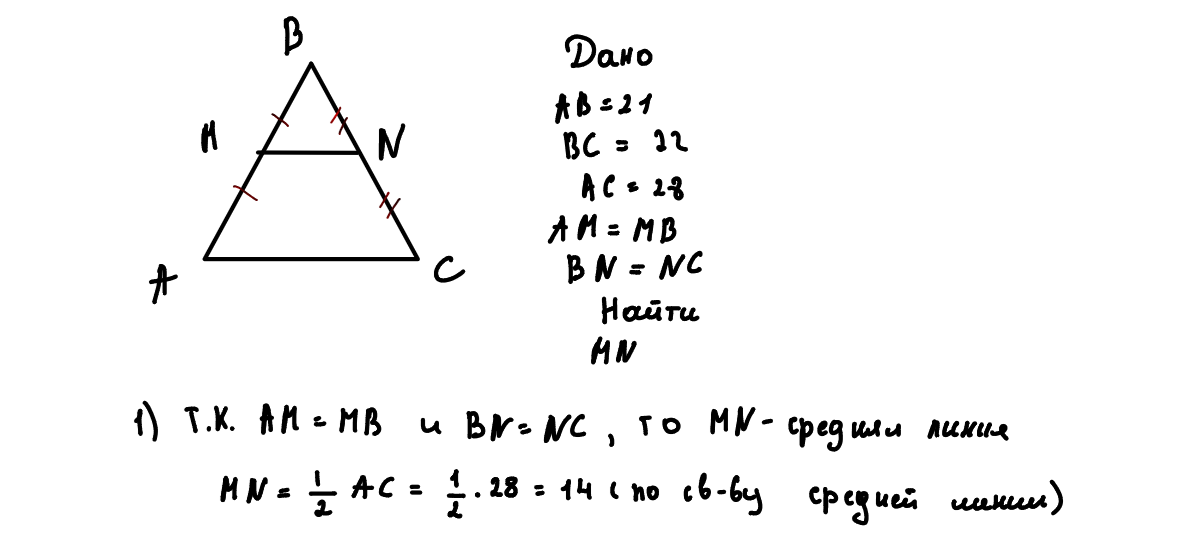 B
M
N
A
C
Дано
AB = 21
BC = 22
AC = 28
AM = MB
BN = NC
Найти
MN
1) Т.К. AM = MB и BN = NC, то MN - средняя линия
MN = 1/2 AC = 1/2 · 28 = 14 (по св-ву средней линии)